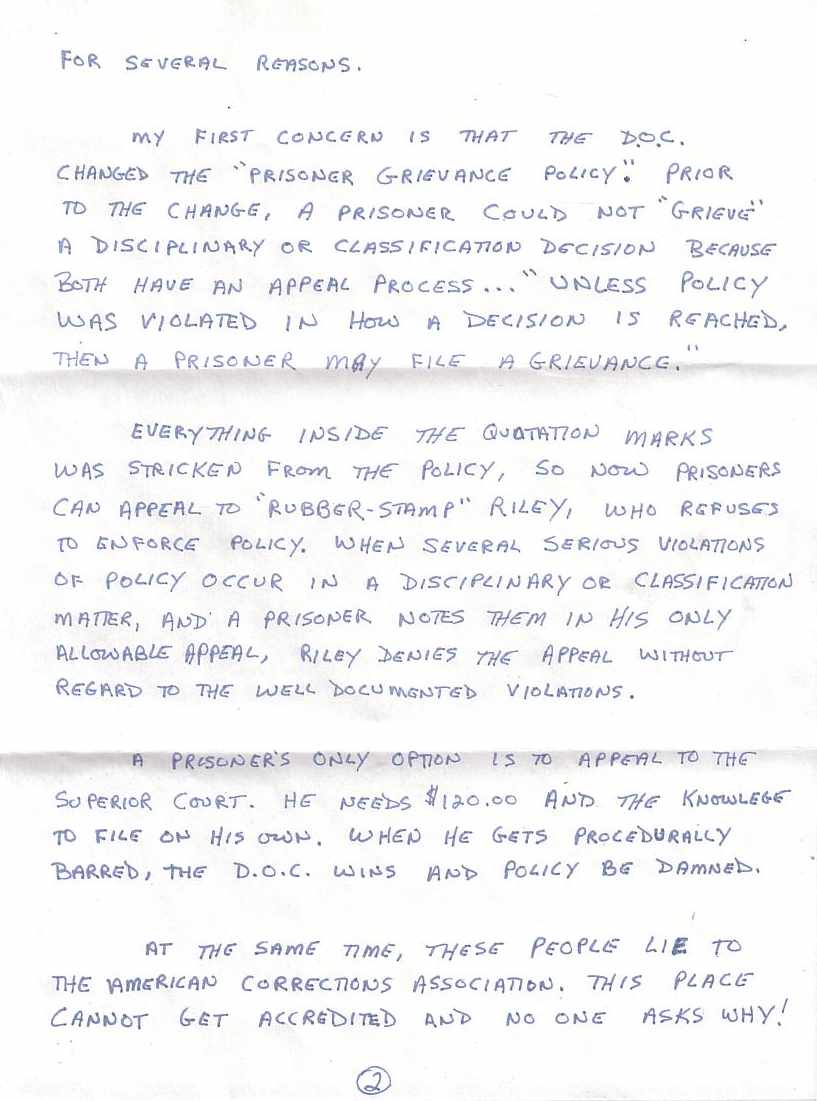 FOR SEVERAL REASONS.
MY FIRST CONCERN IS THAT THE D.O.C.
CHANGED THE "PRISONER GRIEVANCE POLICY". PRIOR
TO THE CHANGE, A PRISONER COULD NOT "GRIEVE"
A DISCIPLINARY OR CLASSIFICATION DECISION BECAUSE
BOTH HAVE AN APPEAL PROCESS... "UNLESS POLICY
WAS VIOLATED IN HOW A DECISION IS REACHED,
THEN A PRISONER MAY FILE A GRIEVANCE."
EVERYTHING INSIDE THE QUOTATION MARKS
WAS STRICKEN FROM THE POLICY, SO NOW PRISONERS
CAN APPEAL TO "RUBBER-STAMP" RILEY, WHO REFUSES
TO ENFORCE POLICY. WHEN SEVERAL SERIOUS VIOLATIONS
OF POLICY OCCUR IN A DISCIPLINARY OR CLASSIFICATION
MATTER, AND A PRISONER NOTES THEM IN HIS ONLY
ALLOWABLE APPEAL, RILEY DENIES THE APPEAL WITHOUT
REGARD TO THE WELL DOCUMENTED VIOLATIONS.
A PRISONER'S ONLY OPTION IS TO APPEAL TO THE
SUPERIOR COURT. HE NEEDS $120.00 AND THE KNOWLEGE
TO FILE ON HIS OWN. WHEN HE GETS PROCEDURALLY
BARRED, THE D.O.C. WINS AND POLICY BE DAMNED.
AT THE SAME TIME, THESE PEOPLE LIE TO
THE AMERICAN CORRECTIONS ASSOCIATION. THIS PLACE
CANNOT GET ACCREDITED AND NO ONE ASKS WHY!
2